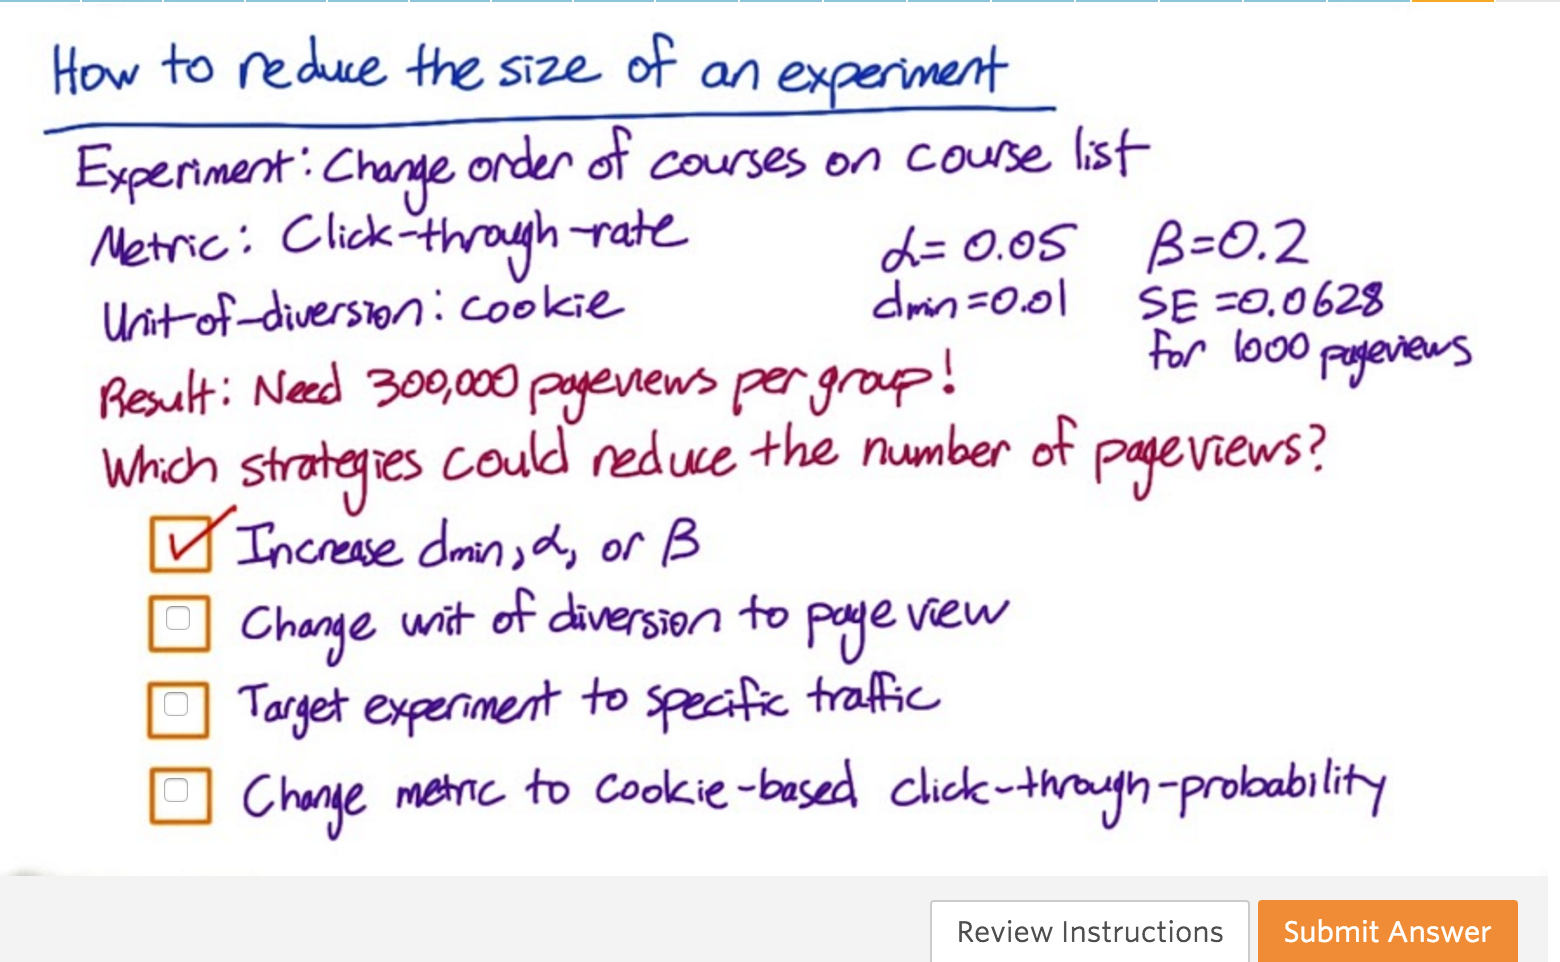 How to reduce the size of an experiment
Experiment: Change order of courses on course list
Metric: Click-through-rate
α = 0.05 β=0.2
Unit-of-diversion: cookie
dmin =0.01 SE =0.0628
for 1000 pageviews
Result: Need 300,000 pageviews per group!
Which strategies could reduce the number of pageviews?
Increase dmin, α, or β
Change unit of diversion to page view
Target experiment to specific traffic
Change metric to cookie-based click-through-probability
Review Instructions
Submit Answer